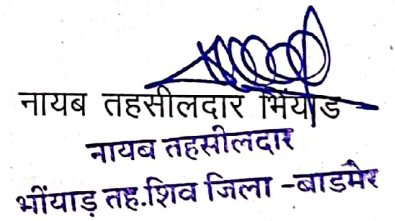 नायब तहसीलदार भिंयाड
नायब तहसीलदार
भींयाड़ तह.शिव जिला -बाडमेर